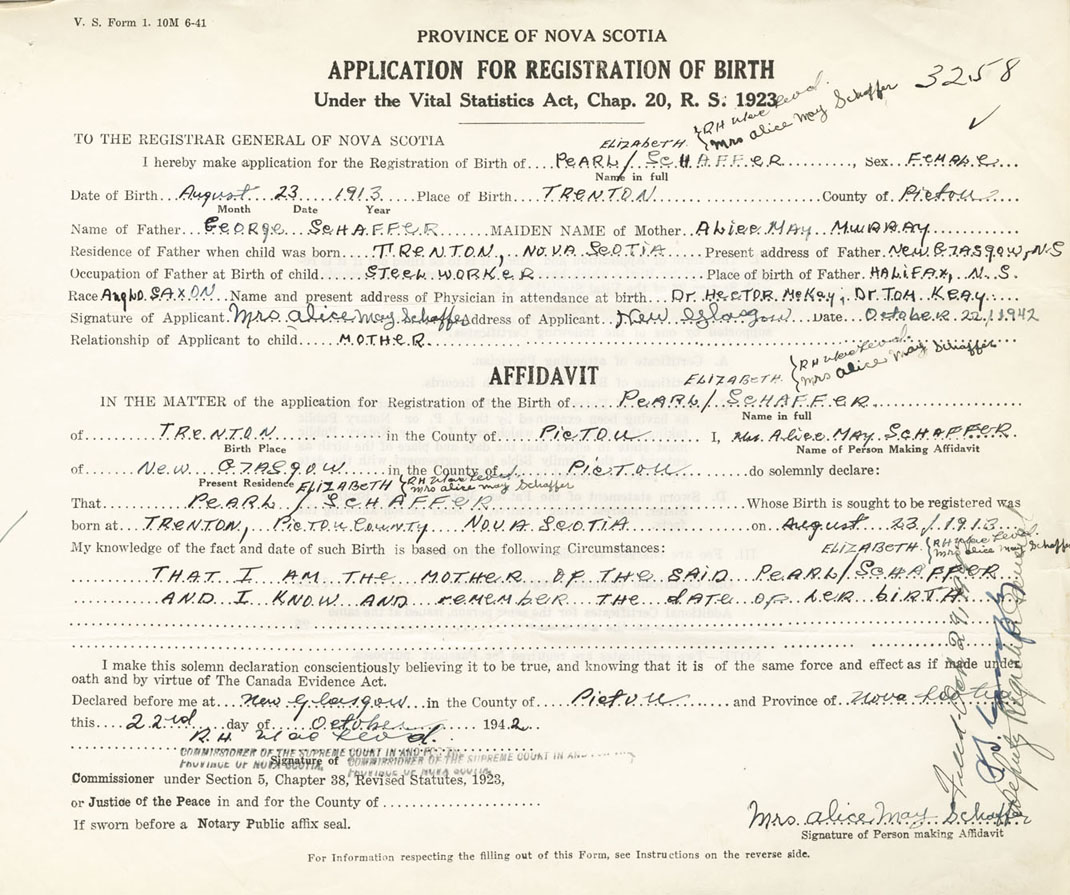 V. S. Form 1. 10M 6-41
PROVINCE OF NOVA SCOTIA
APPLICATION FOR REGISTRATION OF BIRTH
3258
Under the Vital Statistics Act, Chap. 20, R. S. 1923
TO THE REGISTRAR GENERAL OF NOVA SCOTIA
ELIZABETH { RH MacLeod. Mrs Alice May Schaffer
I hereby make application for the Registration of Birth of PEARL / SCHAFFER, Sex FEMALE
Name in full
Date of Birth August 23 1913 Place of Birth TRENTON County of Pictou
Month Date Year
Name of Father GEORGE SCHAFFER MAIDEN NAME of Mother ALICE MAY MURRAY
Residence of Father when child was born TRENTON, NOVA SCOTIA Present address of Father NEW GLASGOW, NS
Occupation of Father at Birth of child STEEL WORKER Place of birth of Father HALIFAX, N.S.
Race ANGLO SAXON Name and present address of Physician in attendance at birth Dr. HECTOR McKAY; Dr. TOM KEAY
Signature of Applicant Mrs. Alice May Schaffer Address of Applicant New Glasgow Date OCTOBER 22, 1942
Relationship of Applicant to child MOTHER
ELIZABETH { RH MacLeod. Mrs Alice May Schaffer
AFFIDAVIT
IN THE MATTER of the application for Registration of the Birth of PEARL / SCHAFFER
Name in full
of TRENTON in the County of PICTOU I, Mrs. ALICE MAY SCHAFFER
Birth Place Name of Person Making Affidavit
of NEW GLASGOW in the County of PICTOU do solemnly declare:
Present Residence ELIZABETH { RH MacLeod. Mrs Alice May Schaffer
That PEARL / SCHAFFER Whose Birth is sought to be registered was
born at TRENTON, PICTOU COUNTY NOVA SCOTIA on August 23, 1913
My knowledge of the fact and date of such Birth is based on the following Circumstances: ELIZABETH { RH MacLeod. Mrs Alice May Schaffer
THAT I AM THE MOTHER OF THE SAID PEARL / SCHAFFER
AND I KNOW AND REMEMBER THE DATE OF HER BIRTH
I make this solemn declaration conscientiously believing it to be true, and knowing that it is of the same force and effect as if made under
oath and by virtue of The Canada Evidence Act.
Declared before me at New Glasgow in the County of Pictou and Province of Nova Scotia
this 22nd day of October 1942
R.H. MacLeod.
COMMISSIONER OF THE SUPREME COURT IN AND
PROVINCE OF NOVA SCOTIA
Signature of
COMMISSIONER OF THE SUPREME COURT IN AND
PROVINCE OF NOVA SCOTIA
Commissioner under Section 5, Chapter 38, Revised Statutes, 1923,
or Justice of the Peace in and for the County of
If sworn before a Notary Public affix seal.
Mrs. Alice May Schaffer
Signature of Person making Affidavit
For Information respecting the filling out of this Form, see Instructions on the reverse side.
Filed Oct 29,
Deputy Registrar General